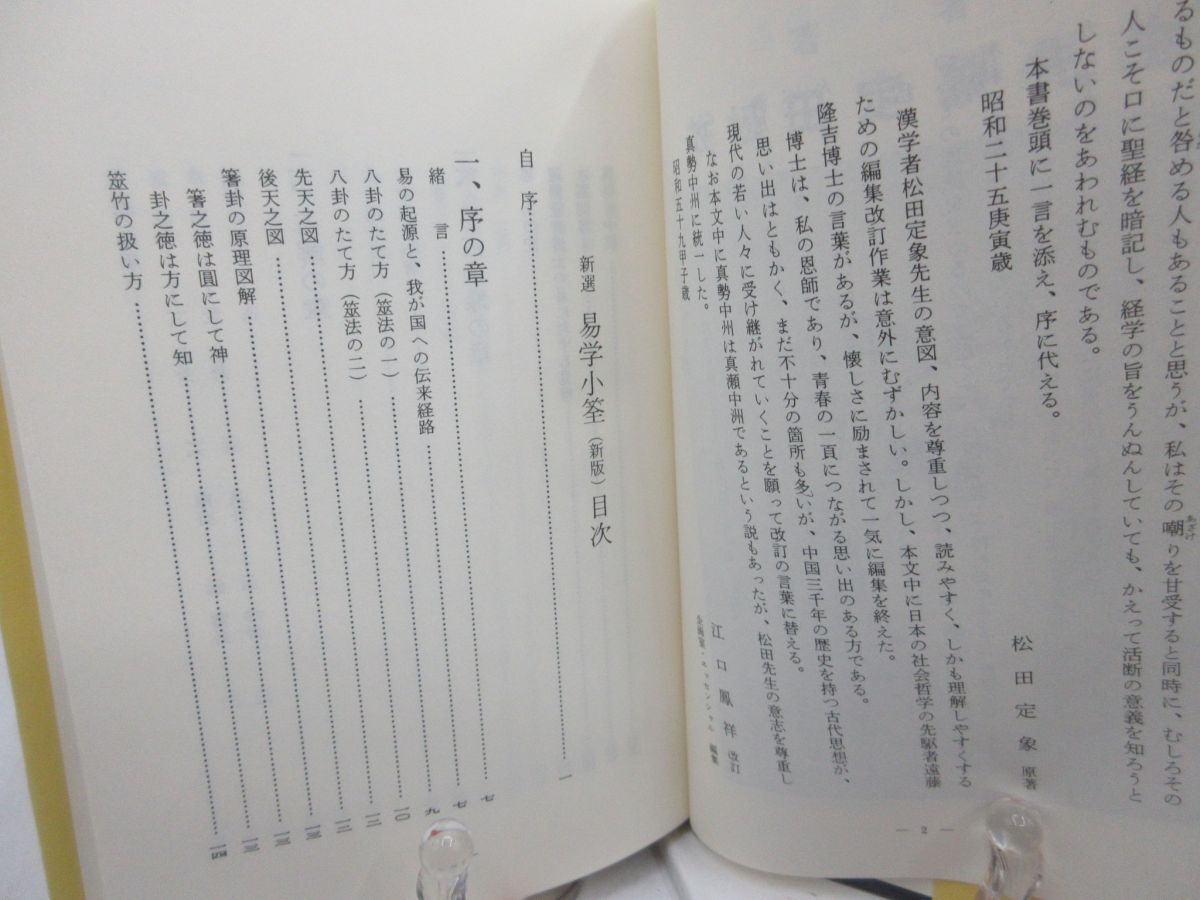 るものだと咎める人もあることと思うが、私はその嘲りを甘受すると同時に、むしろその
人こそ口に聖経を暗記し、経学の旨をうんぬんしていても、かえって活断の意義を知ろうと
しないのをあわれむものである。
本書巻頭に一言を添え、序に代える。
昭和二十五庚寅歳
松田定象 原著
漢学者松田定象先生の意図、内容を尊重しつつ、読みやすく、しかも理解しやすくする
ための編集改訂作業は意外にむずかしい。しかし、本文中に日本の社会哲学の先駆者遠藤
隆吉博士の言葉があるが、懐しさに励まされて一気に編集を終えた。
博士は、私の恩師であり、青春の一頁につながる思い出のある方である。
思い出はともかく、まだ不十分の箇所も多いが、中国三千年の歴史を持つ古代思想が、
現代の若い人々に受け継がれていくことを願って改訂の言葉に替える。
なお本文中に真勢中州は真瀬中洲であるという説もあったが、松田先生の意志を尊重し
真勢中州に統一した。
昭和五十九甲子歳
江口鳳祥 改訂
エッセンシャル 編集
— 2 —
新選 易学小筌(新版)目次
自序……一
一、序の章……七
緒言……七
易の起源と、我が国への伝来経路……九
八卦のたて方(筮法の一)……一〇
八卦のたて方(筮法の二)……一二
先天之図……一二
後天之図……一三
筮卦の原理図解……一三
蓍之徳は圓にして神……一三
卦之徳は方にして知……一三
筮竹の扱い方……一四